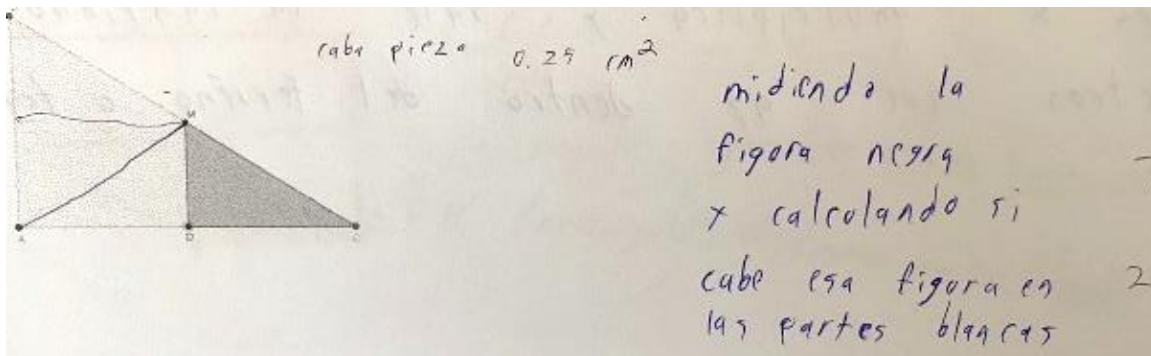 caba pieza 0.25 cm²
midiendo la
figura negra
y calculando si
cabe esa figura en
las partes blancas
2
M
A
D
C